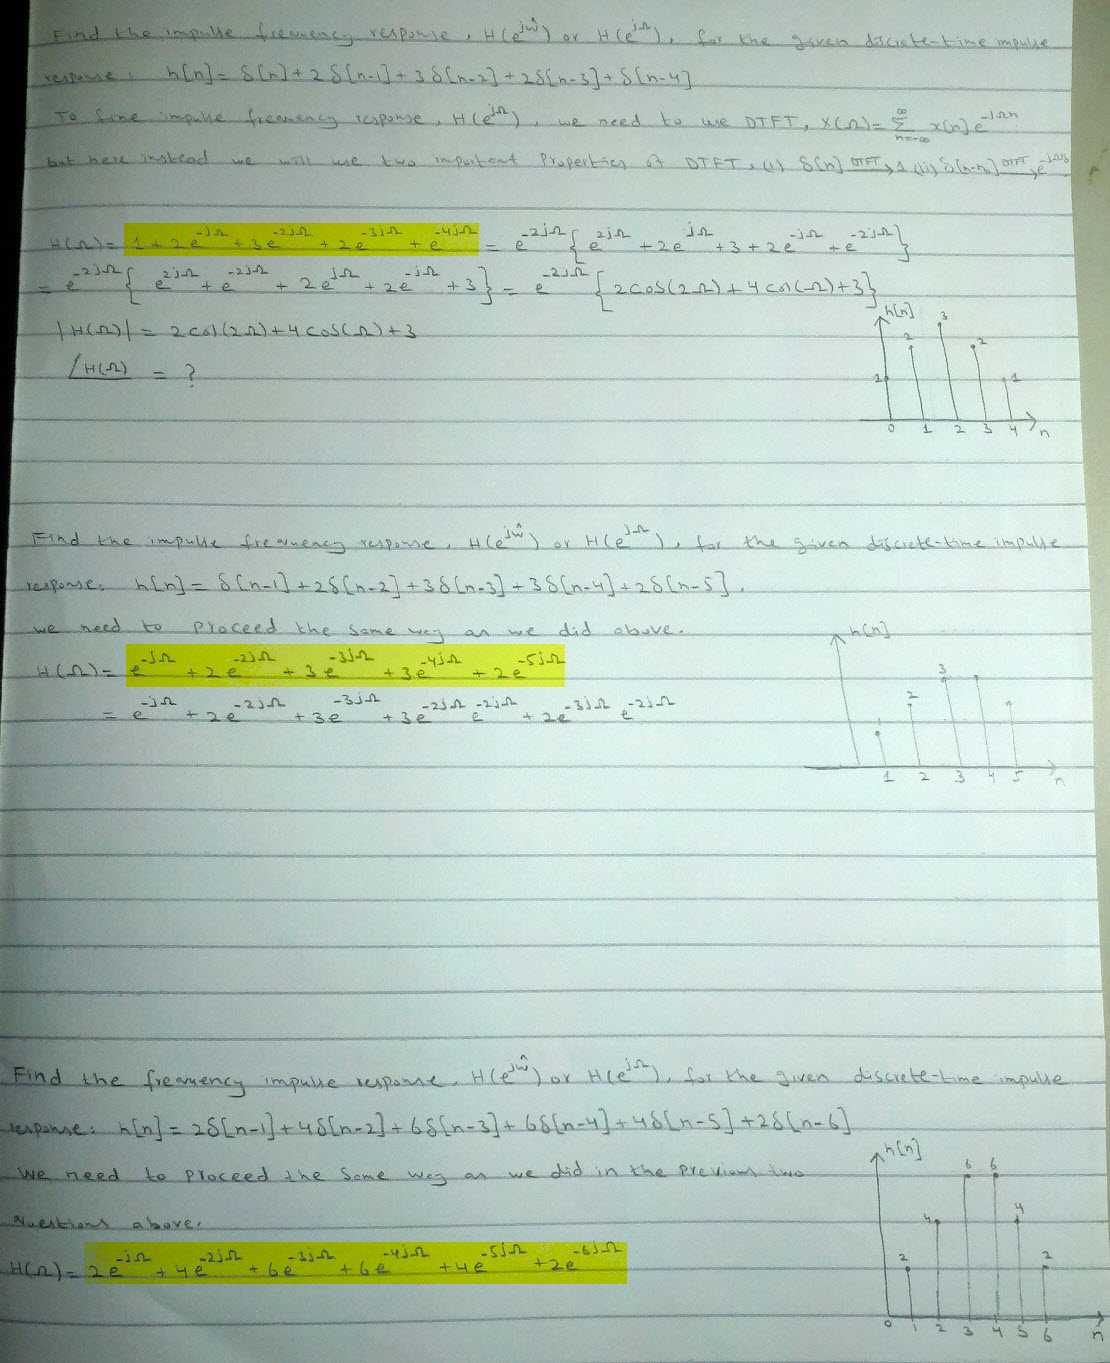 Find the impulse frequency response, H(e^jŵ) or H(e^jΩ), for the given discrete-time impulse
response: h[n] = δ[n]+2δ[n-1]+3δ[n-2]+2δ[n-3]+δ[n-4]
To fine impulse frequency response, H(e^jΩ), we need to use DTFT, X(Ω)= ∑_{n=-∞}^{∞} x[n]e^-jΩn
but here instead we will use two important Properties of DTFT, (i) δ[n] DTFT→ 1 (ii) δ[n-n₀] DTFT→
H(Ω)= 1+2e^-jΩ +3e^-2jΩ +2e^-3jΩ +e^-4jΩ = e^-2jΩ {e^2jΩ +2e^jΩ +3+2e^-jΩ +e^-2jΩ}
= e^-2jΩ {e^2jΩ +e^-2jΩ + 2e^jΩ +2e^-jΩ +3} = e^-2jΩ {2cos(2Ω)+4cos(Ω)+3}
|H(Ω)| = 2cos(2Ω)+4cos(Ω)+3
∠H(Ω) = ?
h[n]
3
2
2
1
1
0 1 2 3 4 n
Find the impulse frequency response, H(e^jŵ) or H(e^jΩ), for the given discrete-time impulse
response: h[n] = δ[n-1]+2δ[n-2]+3δ[n-3]+3δ[n-4]+2δ[n-5].
we need to proceed the same way as we did above.
H(Ω)= e^-jΩ +2e^-2jΩ +3e^-3jΩ +3e^-4jΩ +2e^-5jΩ
= e^-jΩ +2e^-2jΩ +3e^-3jΩ +3e^-2jΩ e^-2jΩ +2e^-3jΩ e^-2jΩ
h[n]
3
2
1
1 2 3 4 5 n
Find the frequency impulse response, H(e^jŵ) or H(e^jΩ), for the given discrete-time impulse
response: h[n] = 2δ[n-1]+4δ[n-2]+6δ[n-3]+6δ[n-4]+4δ[n-5]+2δ[n-6]
We need to proceed the same way as we did in the previous two
questions above.
H(Ω)= 2e^-jΩ +4e^-2jΩ +6e^-3jΩ +6e^-4jΩ +4e^-5jΩ +2e^-6jΩ
h[n]
6 6
4 4
2 2
0 1 2 3 4 5 6 n